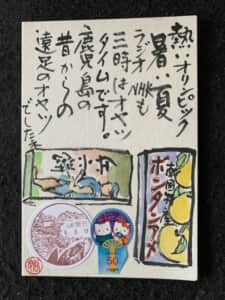 熱いオリンピック
暑い夏
ラジオNHKも
三時はオヤツ
タイムです。
鹿児島の
昔からの
遠足のオヤツ
でした
南国名産
ボンタンアメ
50